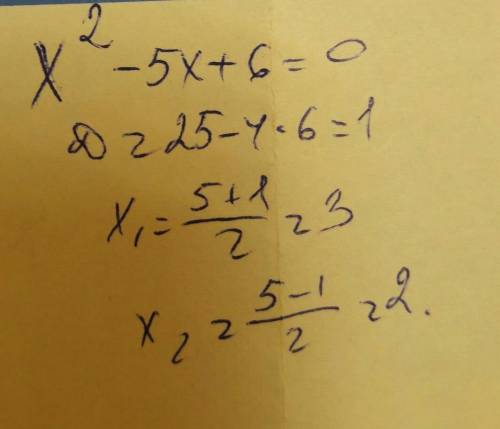 x² - 5x + 6 = 0
D = 25 - 4 · 6 = 1
x₁ = (5 + 1)/2 = 3
x₂ = (5 - 1)/2 = 2.